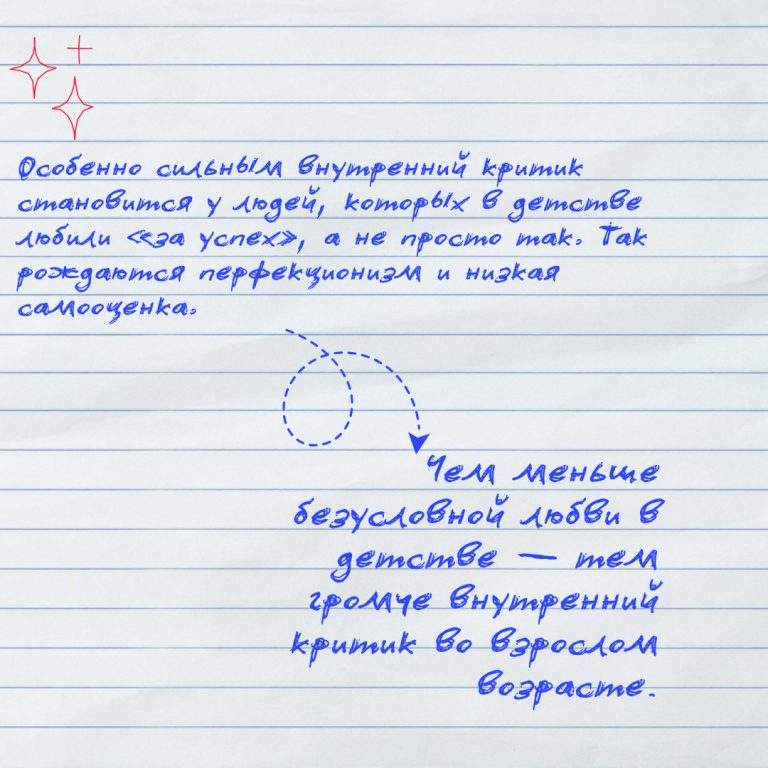 Особенно сильным внутренний критик
становится у людей, которых в детстве
любили «за успех», а не просто так. Так
рождаются перфекционизм и низкая
самооценка.
Чем меньше
безусловной любви в
детстве — тем
громче внутренний
критик во взрослом
возрасте.